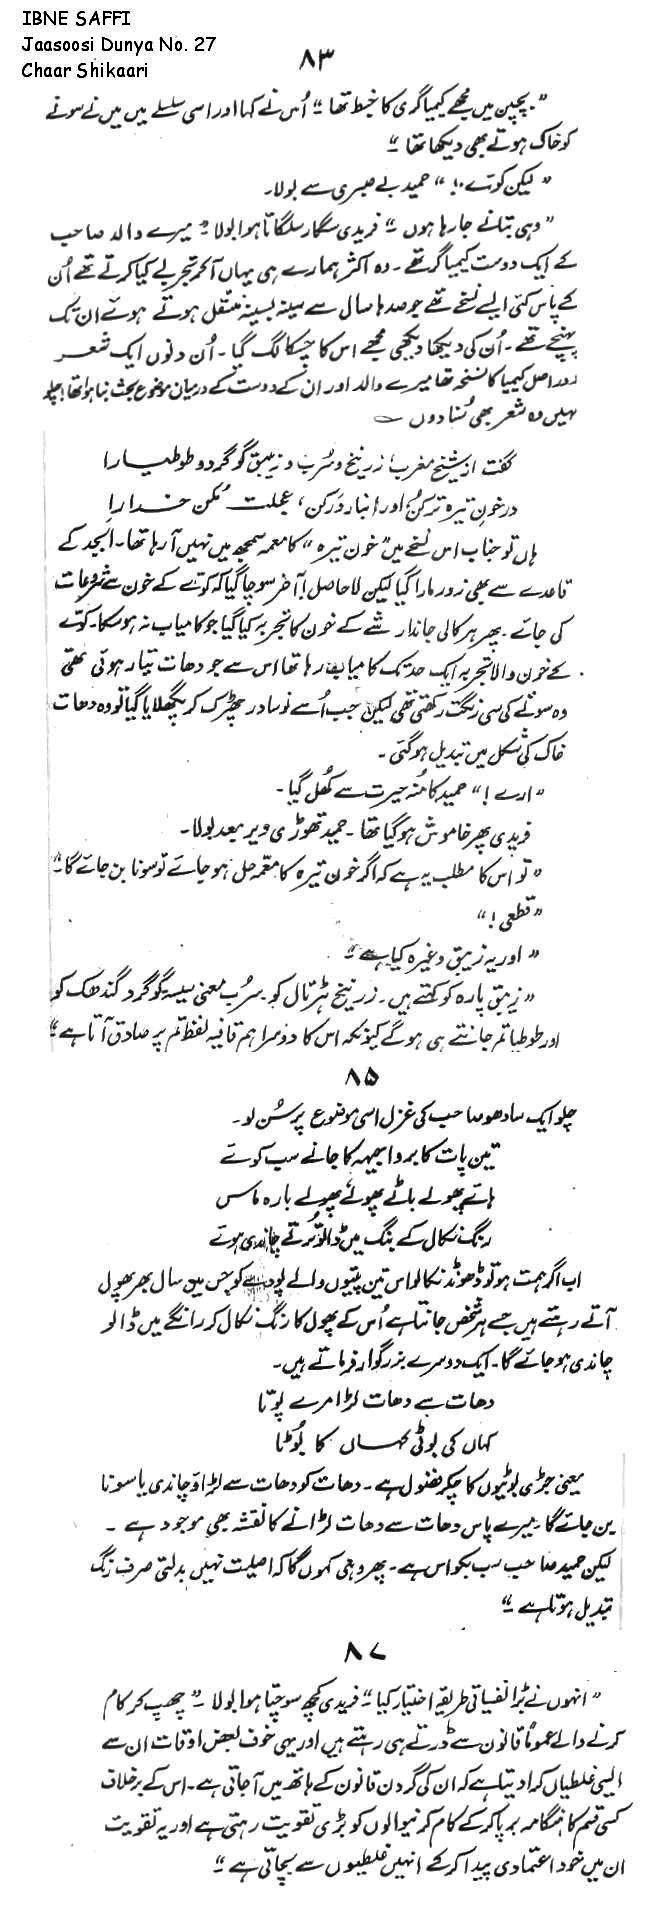 IBNE SAFFI
Jaasoosi Dunya No. 27
Chaar Shikaari
۸۳
”بچپن میں مجھے کیمیا گری کا خبط تھا“ اُس نے کہا اور اسی سلسلے میں میں نے سونے
کو خاک ہوتے بھی دیکھا تھا“
”لیکن کوّے۔!“ حمید بے صبری سے بولا۔
”وہی بتانے جا رہا ہوں“ فریدی سگار سلگاتا ہوا بولا ”میرے والد صاحب
کے ایک دوست کیمیا گر تھے۔ وہ اکثر ہمارے ہی یہاں آکر تجربے کیا کرتے تھے اُن
کے پاس کئی ایسے نسخے تھے جو صدہا سال سے سینہ بسینہ منتقل ہوتے ہوئے ان تک
پہنچے تھے۔ اُن کی دیکھا دیکھی مجھے اس کا چسکا لگ گیا۔ اُن دنوں ایک شعر
دراصل کیمیا کا نسخہ تھا میرے والد اور ان کے دوست کے درمیان موضوع بحث بنا ہوا تھا! چلو
تمہیں وہ شعر بھی سُنا دوں
گفت از شیخ مغرب زرنیخ و سُرب و زیبق گوگرد و طوطیا را
در خونِ تیرہ تر کن اور انبار در کن، عجلت مکن خدا را
ہاں تو جناب اس نسخے میں ”خون تیرہ“ کا معمہ سمجھ میں نہیں آ رہا تھا۔ ابجد کے
قاعدے سے بھی زور مارا گیا لیکن لا حاصل! آخر سوچا گیا کہ کوّے کے خون سے شروعات
کی جائے۔ پھر ہر کالی جاندار شے کے خون کا تجربہ کیا گیا جو کامیاب نہ ہو سکا۔ کوّے
کے خون والا تجربہ ایک حد تک کامیاب رہا تھا اس سے جو دھات تیار ہوئی تھی
وہ سونے کی سی رنگت رکھتی تھی لیکن جب اُسے نوسادر چھڑک کر پگھلایا گیا تو وہ دھات
خاک کی شکل میں تبدیل ہو گئی۔
”ارے!“ حمید کا مُنہ حیرت سے کُھل گیا۔
فریدی پھر خاموش ہو گیا تھا۔ حمید تھوڑی دیر بعد بولا۔
”تو اس کا مطلب یہ ہے کہ اگر خون تیرہ کا معمّہ حل ہو جائے تو سونا بن جائے گا“
”قطعی!“
”اور یہ زیبق وغیرہ کیا ہے“
”زیبق پارہ کو کہتے ہیں۔ زرنیخ ہڑتال کو سُرب معنی سیسہ گوگرد گندھک کو
اور طوطیا تم جانتے ہی ہوگے کیونکہ اس کا دوسرا ہم قافیہ لفظ تم پر صادق آتا ہے“
۸۵
چلو ایک سادھو صاحب کی غزل اسی موضوع پر سُن لو۔
تین پات کا بروا بیہہ کا جانے سب کوئے
ہاٹے پھولے باٹے پھولے پھولے بارہ ماس
رنگ نکال کے بنگ میں ڈالو تُرتے چاندی ہوئے
اب اگر ہمت ہو تو ڈھونڈ نکالو اس تین پتیوں والے پودے کو جس میں سال بھر پھول
آتے رہتے ہیں جسے ہر شخص جانتا ہے اُس کے پھول کا رنگ نکال کر رانگے میں ڈالو
چاندی ہو جائے گا۔ ایک دوسرے بزرگوار فرماتے ہیں۔
دھات سے دھات لڑا مرے پوتا
کہاں کی بوٹی کہاں کا بُوٹا
یعنی جڑی بوٹیوں کا چکر فضول ہے۔ دھات کو دھات سے لڑاؤ چاندی یا سونا
بن جائے گا۔ میرے پاس دھات سے دھات لڑانے کا نقشہ بھی موجود ہے۔
لیکن حمید صاحب سب بکواس ہے۔ پھر وہی کہوں گا کہ اصلیت نہیں بدلتی صرف رنگ
تبدیل ہوتا ہے“
۸۷
”انہوں نے بڑا نفسیاتی طریقہ اختیار کیا“ فریدی کچھ سوچتا ہوا بولا۔ ”چھپ کر کام
کرنے والے عموماً قانون سے ڈرتے ہی رہتے ہیں اور یہی خوف بعض اوقات ان سے
ایسی غلطیاں کرا دیتا ہے کہ ان کی گردن قانون کے ہاتھ میں آ جاتی ہے۔ اس کے برخلاف
کسی قسم کا ہنگامہ برپا کر کے کام کرنیوالوں کو بڑی تقویت رہتی ہے اور یہ تقویت
ان میں خود اعتمادی پیدا کر کے انہیں غلطیوں سے بچاتی ہے“